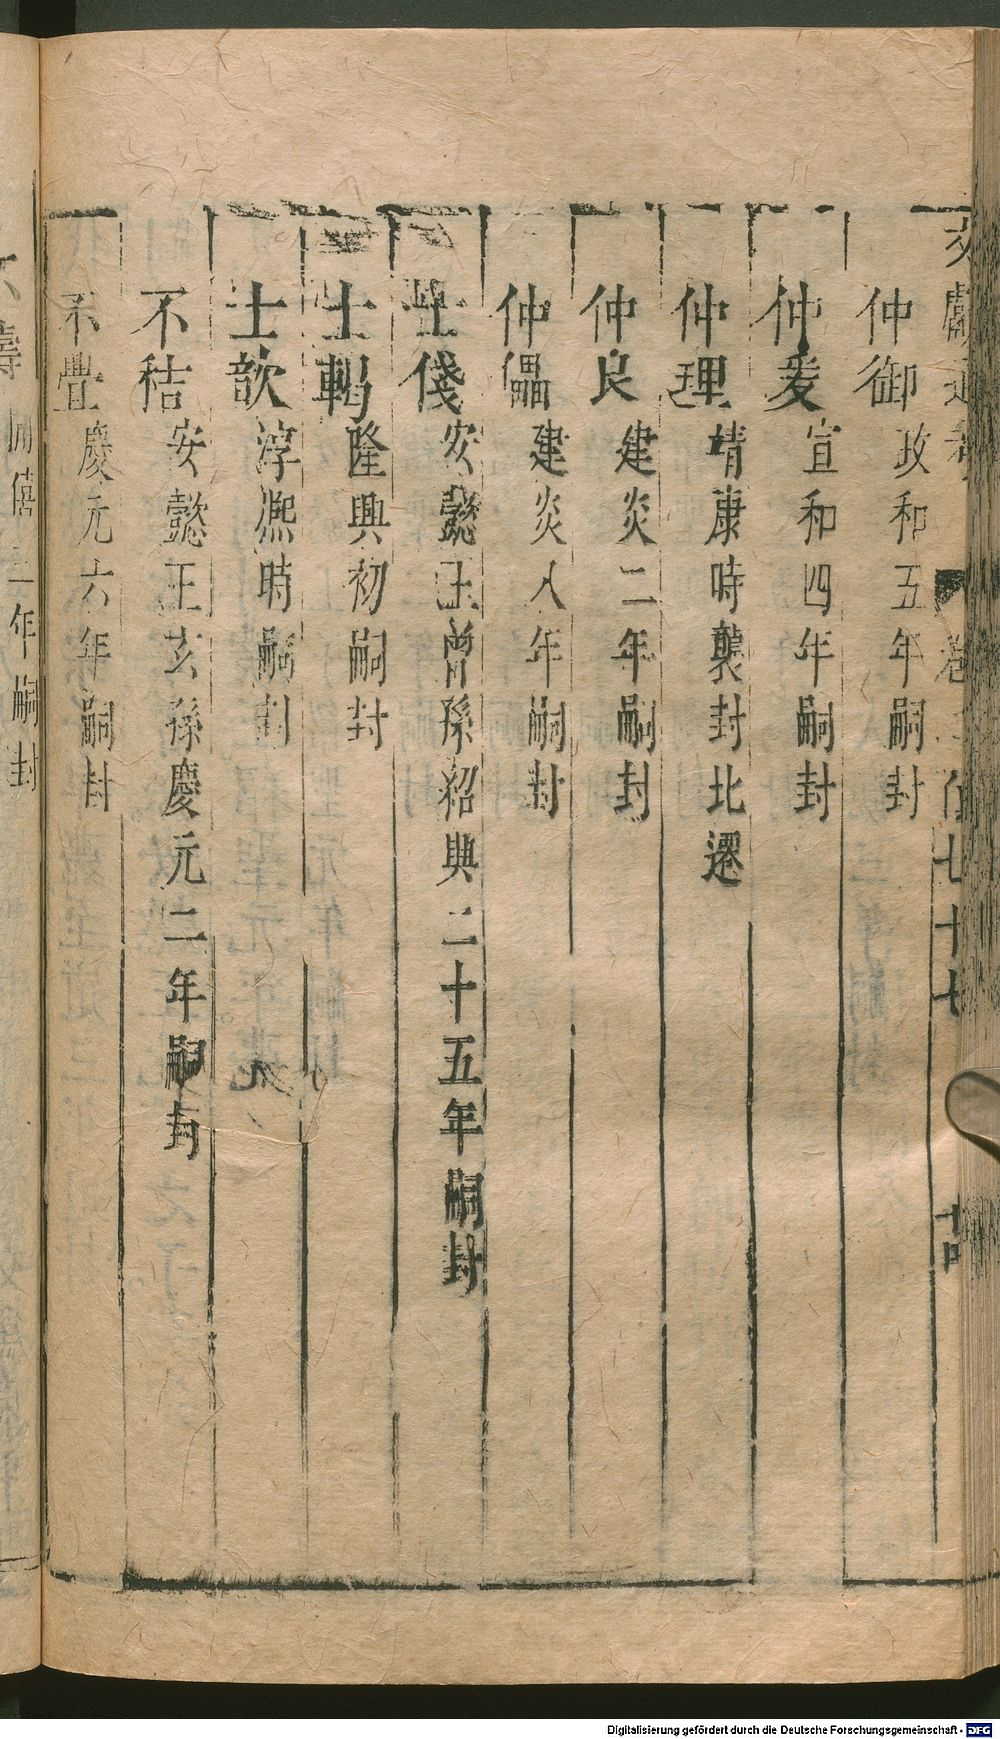 仲御 政和五年嗣封
仲爰 宣和四年嗣封
仲理 靖康時襲封北遷
仲良 建炎二年嗣封
仲儡 建炎八年嗣封
士俴 安懿王曾孫紹興二十五年嗣封
士輵 隆興初嗣封
士歆 淳熙時嗣封
不秸 安懿王玄孫慶元二年嗣封
不璺 慶元六年嗣封
年嗣封
Digitalisierung gefördert durch die Deutsche Forschungsgemeinschaft - DFG